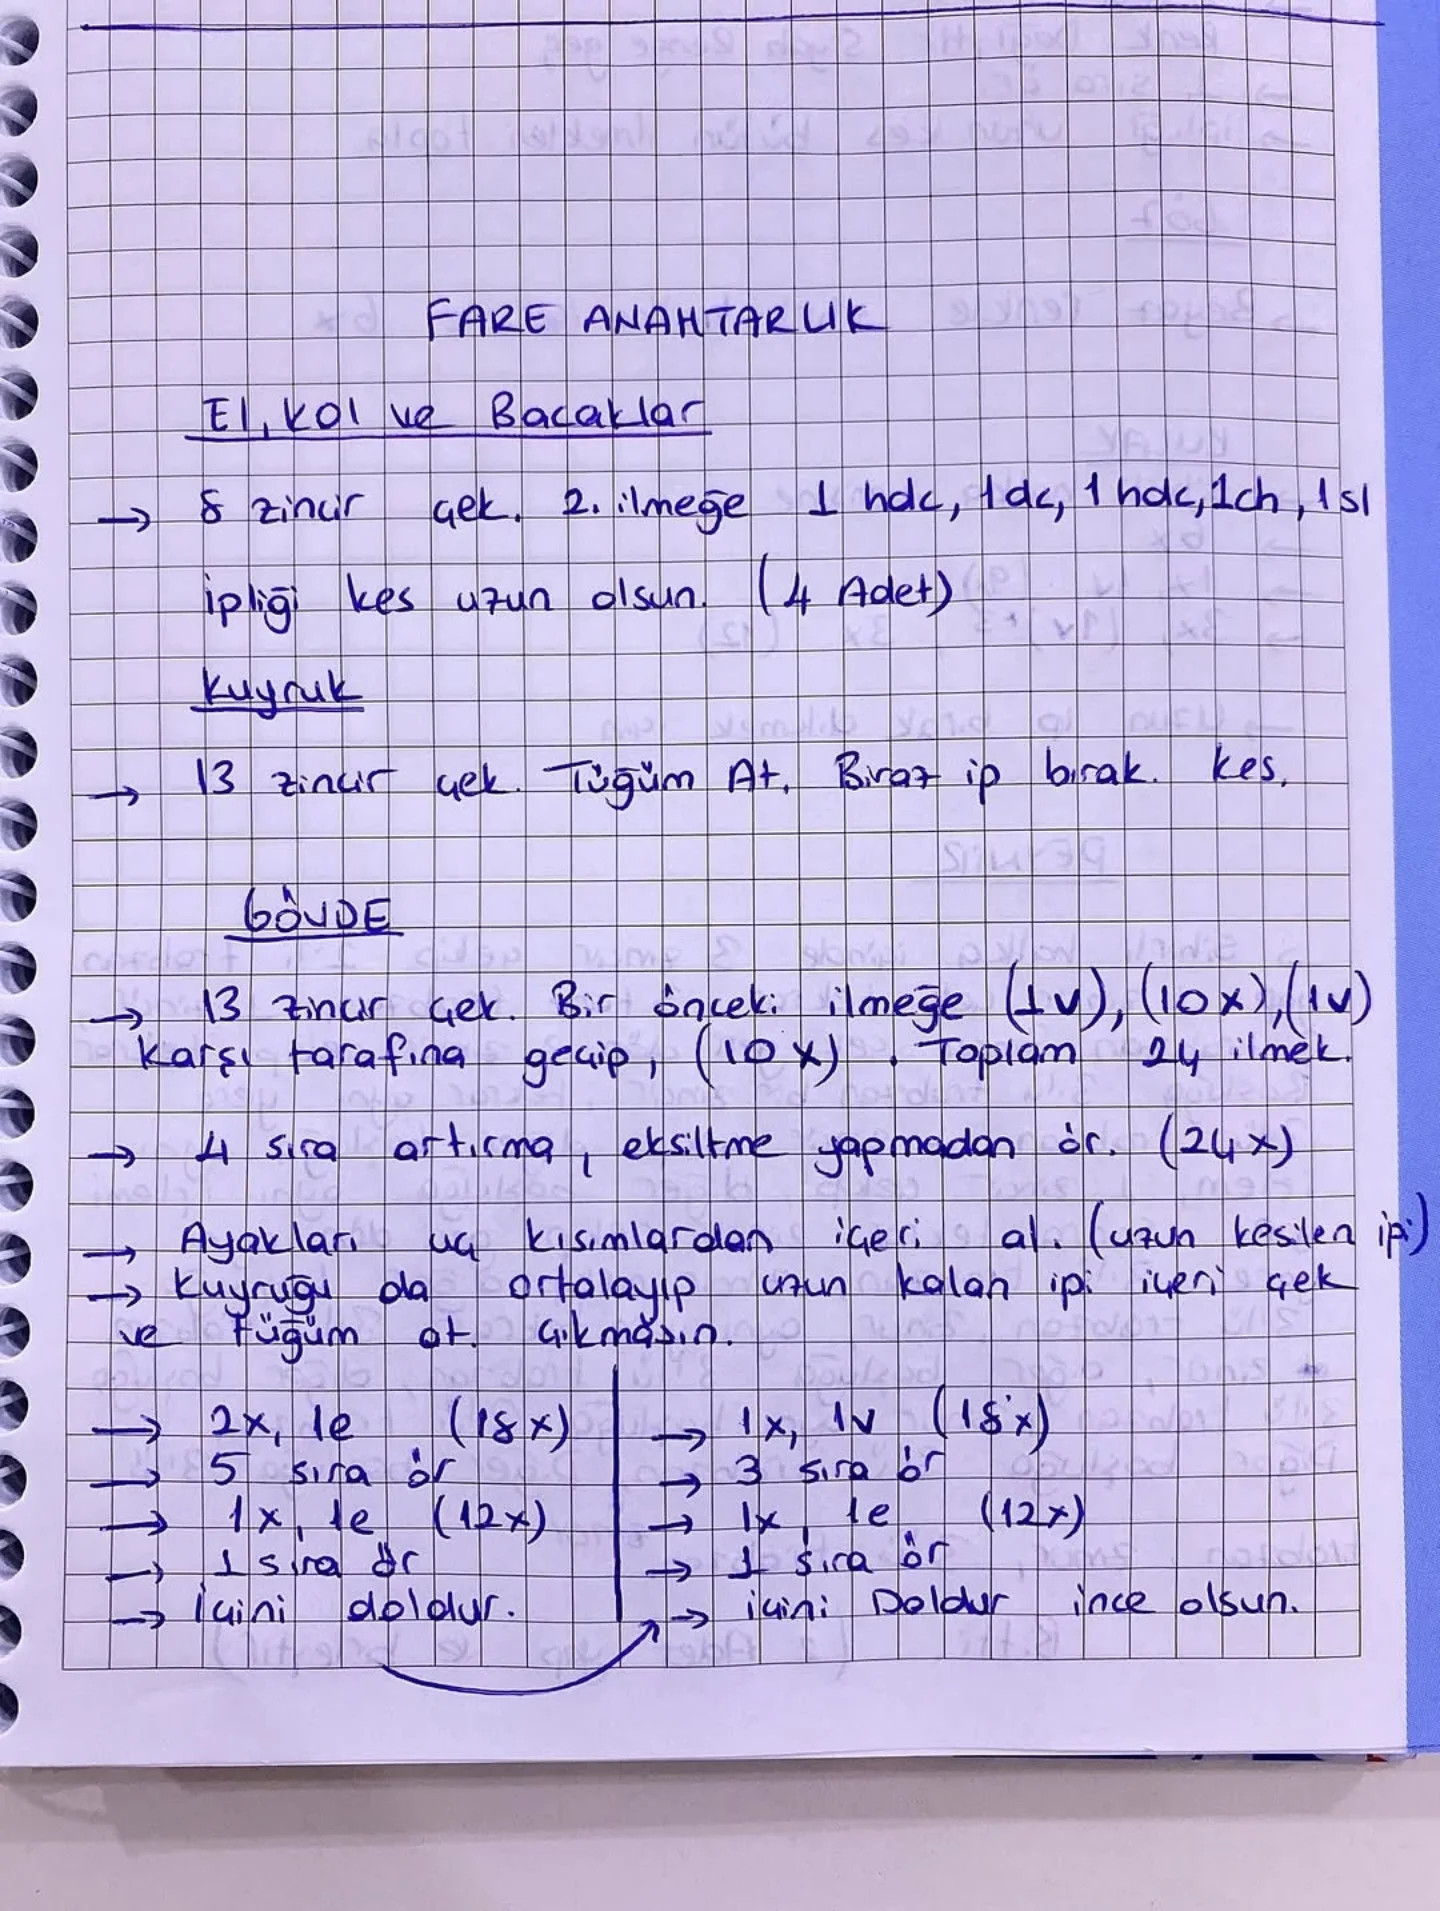 FARE ANAHTARLIK
El, kol ve Bacaklar
→ 8 zincir çek. 2. ilmeğe 1 hdc, 1dc, 1 hdc, 1ch, 1sl
ipliği kes uzun olsun. (4 Adet)
Kuyruk
→ 13 zincir çek. Tüğüm At. Biraz ip bırak. kes.
GÖVDE
→ 13 zincir çek. Bir önceki ilmeğe (1v), (10x), (1v)
karşı tarafına geçip, (10x). Toplam 24 ilmek.
→ 4 sıra artırma, eksiltme yapmadan ör. (24x)
→ Ayakları uç kısımlardan içeri al. (uzun kesilen ipi)
→ Kuyruğu da ortalayıp uzun kalan ipi içeri çek
ve tüğüm at. Çıkmasın.
→ 2x, 1e (18x)
→ 5 sıra ör
→ 1x, 1e (12x)
→ 1 sıra ör
→ içini doldur.
→ 1x, 1v (18x)
→ 3 sıra ör
→ 1x, 1e (12x)
→ 1 sıra ör
→ içini Doldur ince olsun.